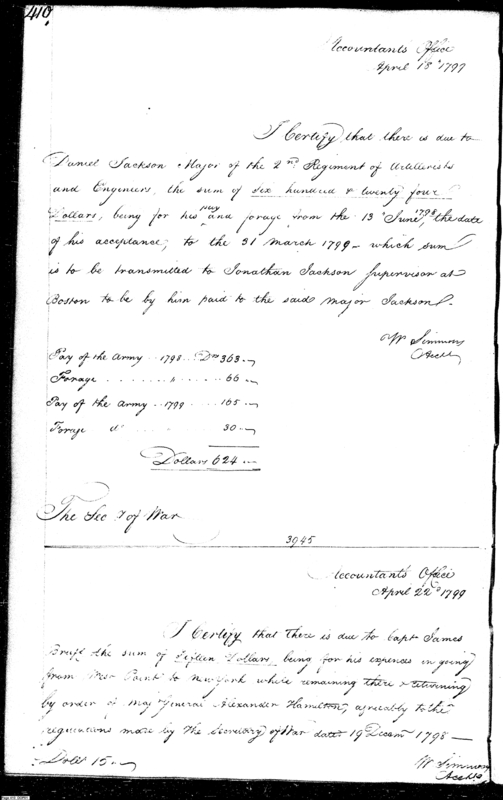 410
Accountants Office
April 18th 1799
I Certify that there is due to
Daniel Jackson Major of the 2nd Regiment of Artillerists
and Engeniers, the sum of six hundred & twenty four
Dollars, being for his pay and forage from the 13 June 1798, the date
of his acceptance, to the 31 March 1799 - which sum
is to be transmitted to Jonathan Jackson Supervisor at
Boston to be by him paid to the said major Jackson.
Wm Simmons
Acctt
Pay of the Army .. 1798 .. Drs 363 ..
Forage . . . . . . . " . . . . 66 ..
Pay of the Army .. 1799 . . . . 165 ..
Forage do . . . . . . 30 ..
Dollars 624 ..
The Secy of War
3945
Accountants Office
April 22d 1799
I Certify that there is due to Capt James
the sum of Fifteen Dollars being for his expences in going
from West Point to Newyork while remaining there & returning
by order of Maj General Alexander Hamilton, agreeably to the
regulations made by the Secretary of War dated 19 Decem 1798 —
Dolls 15 ..
W Simmons
Acctt